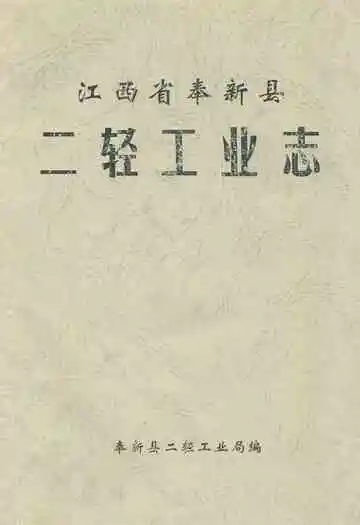 江西省奉新县
二轻工业志
奉新县二轻工业局编